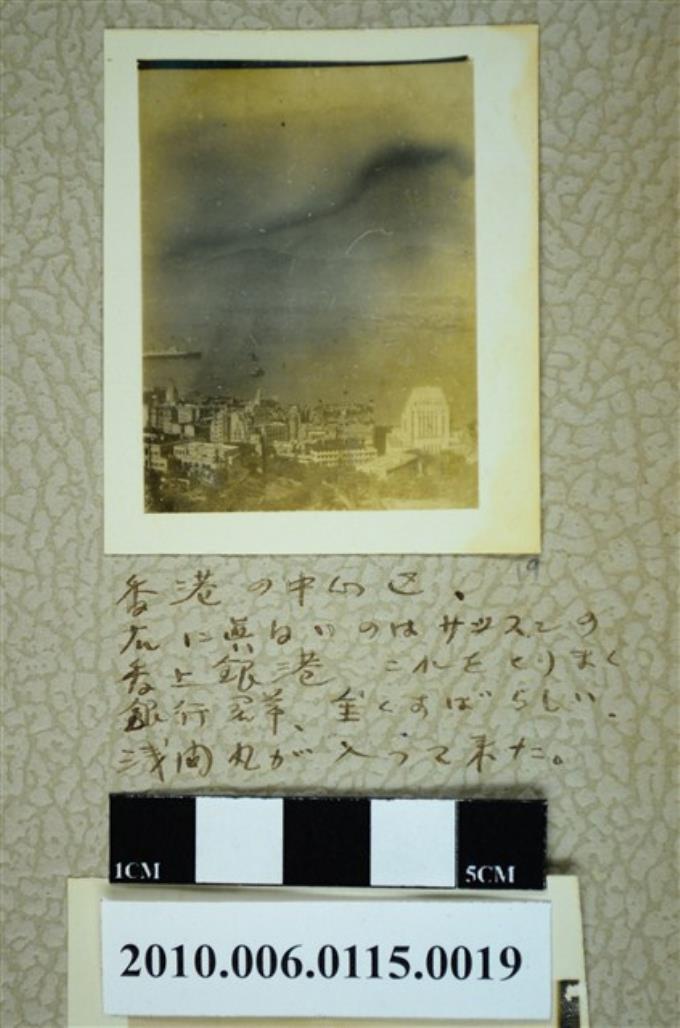 19
香港の中心区、
右に真白いのはサッスンの
香上銀港 これをとりまく
銀行群、全くすばらしい.
浅間丸が入って来た。
1CM
5CM
2010.006.0115.0019